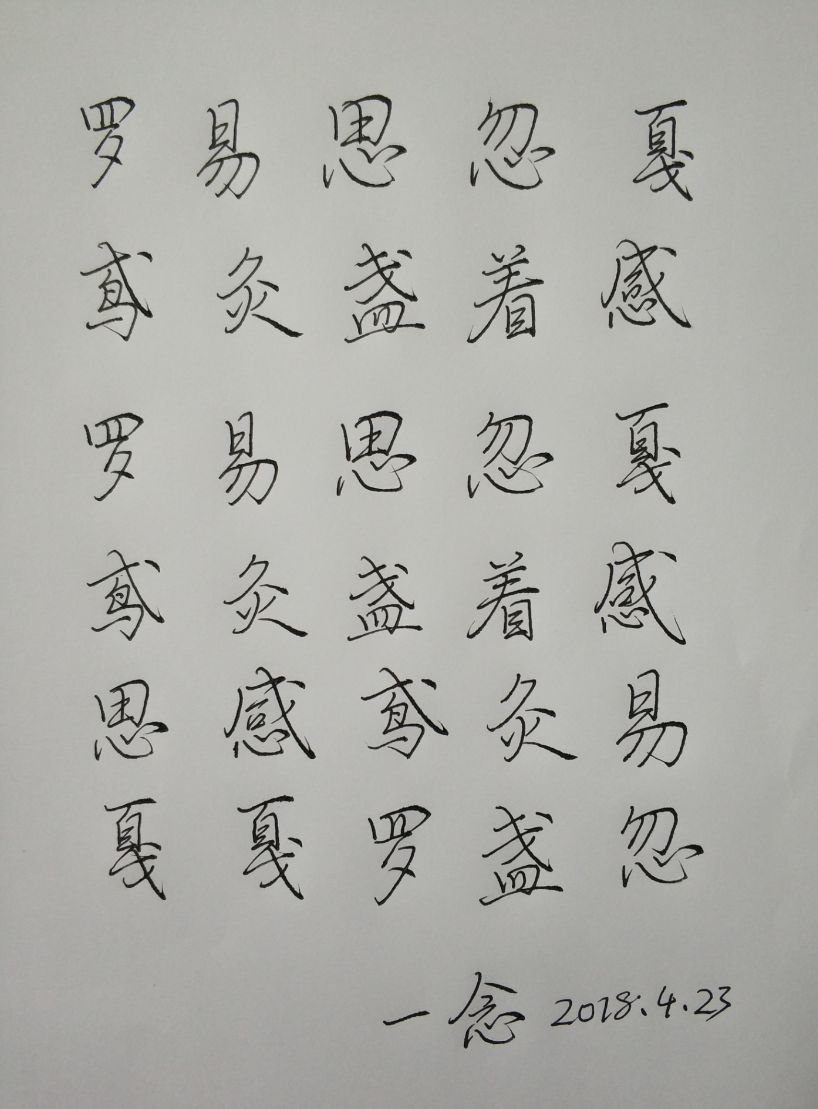 罗易思忽戛
鸢灸盏着感
罗易思忽戛
鸢灸盏着感
思感鸢灸易
戛戛罗盏忽
一念 2018.4.23